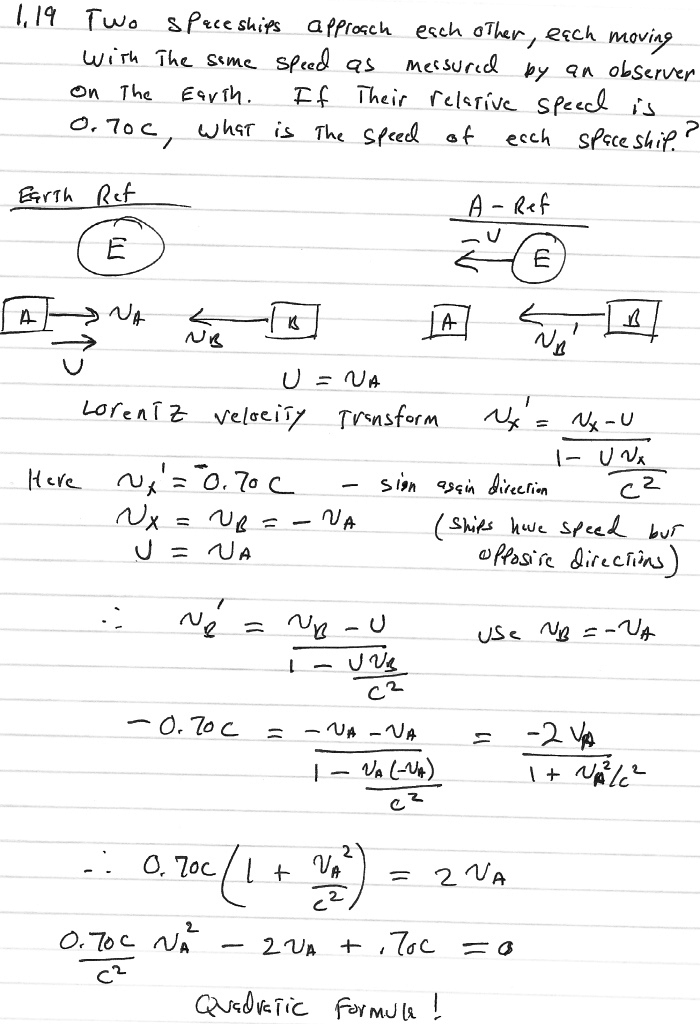 1.19 Two spaceships approach each other, each moving
with the same speed as measured by an observer
on the Earth. If their relative speed is
0.70c, what is the speed of each spaceship?
Earth Ref
A - Ref
E
-U
E
A → v_A
v_B ← B
U
A
v_B' ← B
U = v_A
Lorentz velocity Transform v_x' = (v_x - U) / (1 - U v_x / c^2)
Here v_x' = -0.70c - sign again direction
v_x = v_B = - v_A (ships have speed but
U = v_A opposite directions)
∴ v_B' = (v_B - U) / (1 - U v_B / c^2) use v_B = -v_A
-0.70c = (-v_A - v_A) / (1 - v_A(-v_A) / c^2) = -2v_A / (1 + v_A^2/c^2)
∴ 0.70c (1 + v_A^2 / c^2) = 2 v_A
0.70c / c^2 v_A^2 - 2v_A + .70c = 0
Quadratic Formula!